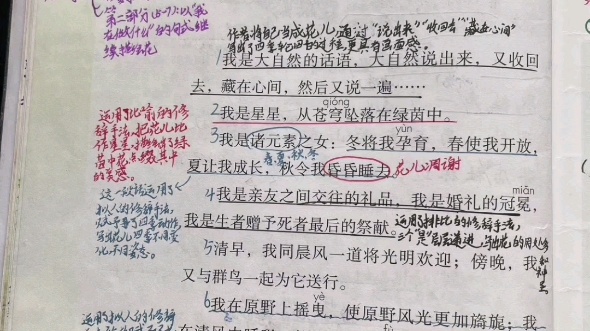 第二部分(5-7):以"我
在做什么"的句式,继
续描绘花
作者将自己当成花儿,通过"说出来""收回去""藏在心间"
写出了四季轮回的过程,更具有画面感。
1我是大自然的话语,大自然说出来,又收回
去,藏在心间,然后又说一遍……
qióng
2我是星星,从苍穹坠落在绿茵中。
yùn
3我是诸元素之女:冬将我孕育,春使我开放,
春、夏、秋、冬
夏让我成长,秋令我昏昏睡去。花儿凋谢
运用了比喻的修
辞手法,把花儿比
作星星,描绘了绿
茵中花点缀其中
的美感。
这一段话运用了
拟人的修辞手法,
miǎn
4我是亲友之间交往的礼品,我是婚礼的冠冕,
我是生者赠予死者最后的祭献。
运用了排比的修辞手法,
三个"是"层层递进,写出花的用途
5清早,我同晨风一道将光明欢迎;傍晚,我
又与群鸟一起为它送行。
yè
6我在原野上摇曳,使原野风光更加旖旎;我
运用了拟人的修辞